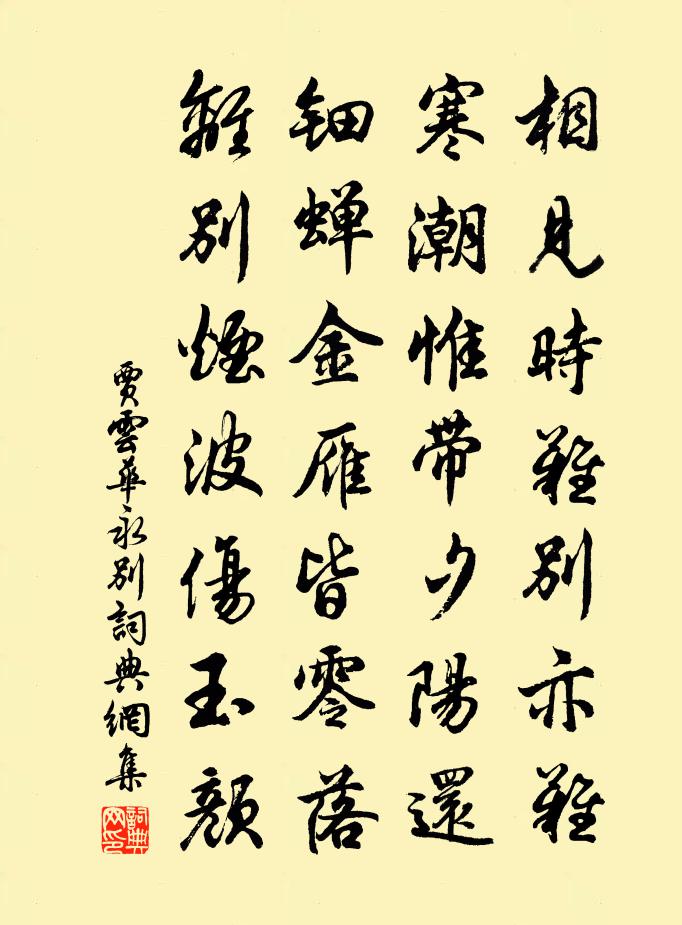 相見時難別亦難
寒潮惟帶夕陽還
鈿蟬金雁皆零落
離別煙波傷玉顏
賈雲華永別詞典網集
詞典网印